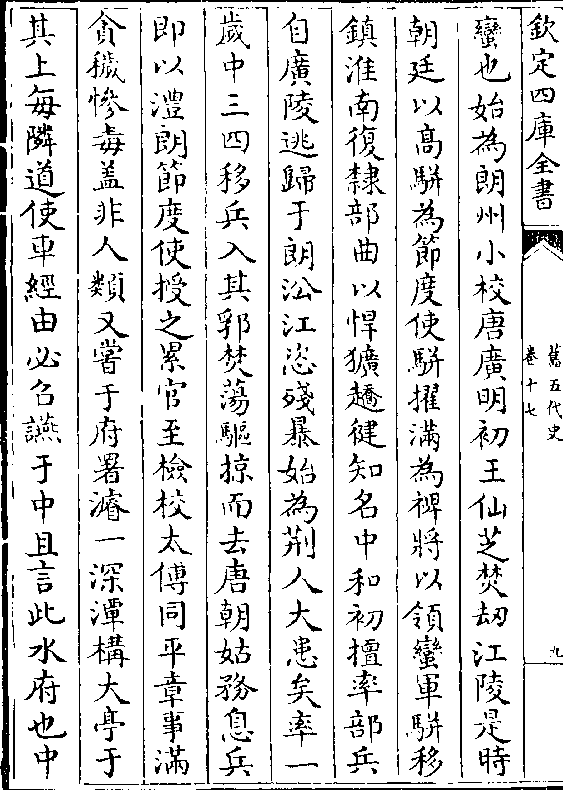 欽定四庫全書
舊五代史
卷十七
九
蠻也始為朗州小校唐廣明初王仙芝焚刼江陵是時
朝廷以髙駢為節度使駢擢滿為裨將以領蠻軍駢移
鎮淮南復隸部曲以悍獷趫健知名中和初擅率部兵
自廣陵逃歸于朗沿江恣殘暴始為荆人大患矣率一
歲中三四移兵入其郛焚蕩驅掠而去唐朝姑務息兵
即以澧朗節度使授之累官至檢校太傅同平章事滿
貪穢慘毒盖非人類又嘗于府署濬一深潭構大亭于
其上每隣道使車經由必召讌于中且言此水府也中